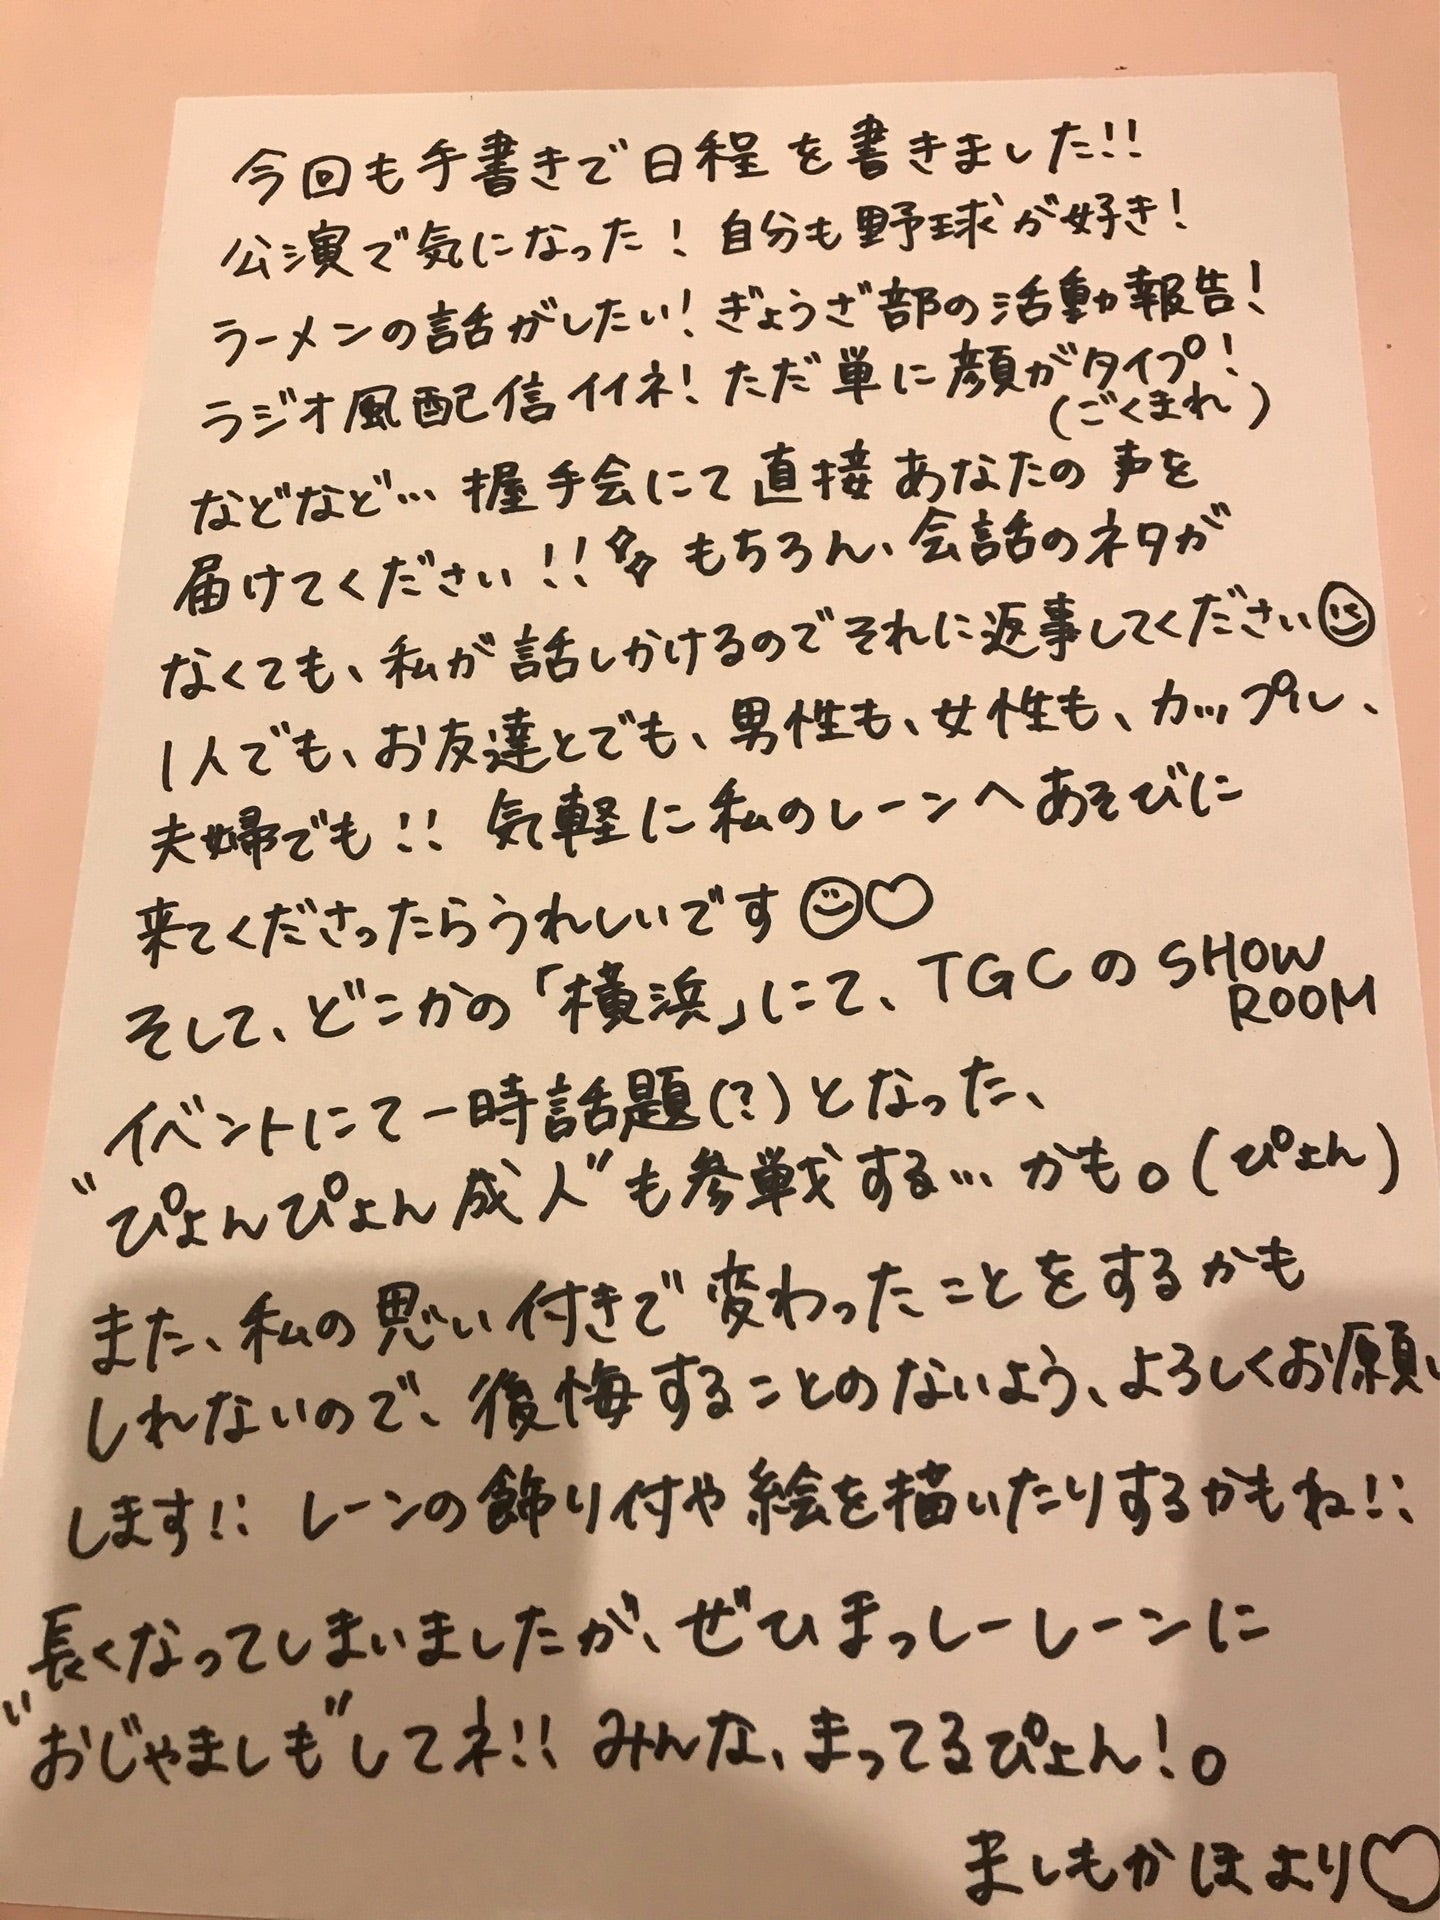 今回も手書きで日程を書きました!!
公演で気になった! 自分も野球が好き!
ラーメンの話がしたい! ぎょうざ部の活動報告!
ラジオ風配信イイネ! ただ単に顔がタイプ!
(ごくまれ)
などなど… 握手会にて直接あなたの声を
届けてください!! もちろん、会話のネタが
なくても、私が話しかけるのでそれに返事してください
1人でも、お友達とでも、男性も、女性も、カップル、
夫婦でも!! 気軽に私のレーンへあそびに
来てくださったらうれしいです♡
そして、どこかの「横浜」にて、TGCのSHOW
ROOM
イベントにて一時話題(?)となった、
"ぴょんぴょん成人"も参戦する… かも。(ぴょん)
また、私の思い付きで変わったことをするかも
しれないので、後悔することのないよう、よろしくお願い
します!! レーンの飾り付や絵を描いたりするかもね!!
長くなってしまいましたが、ぜひまっしーレーンに
"おじゃましも"してネ!! みんな、まってるぴょん!。
ましもかほより♡